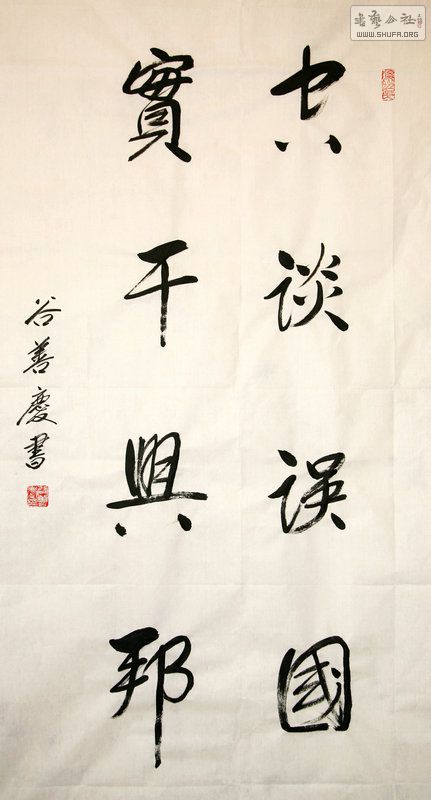 空谈误國
實干興邦
谷善慶書
書藝公社
WWW.SHUFA.ORG